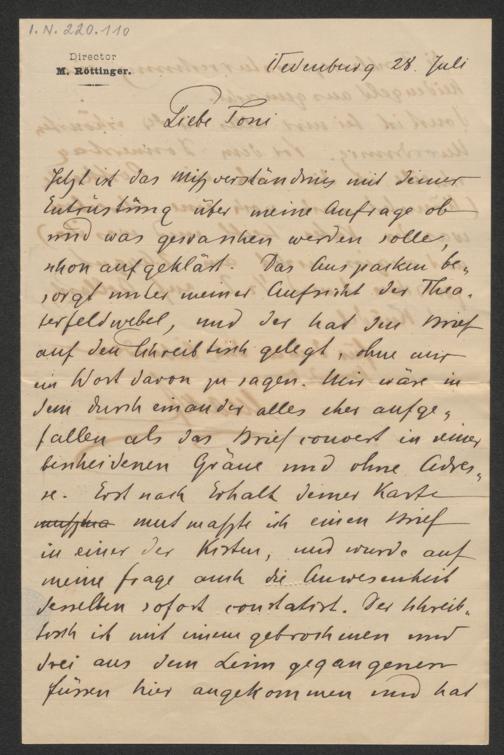 I.N. 220.110
Director
M. Röttinger.
Oedenburg 28. Juli
Liebe Toni
Jetzt ist das Mißverständnis mit deiner
Entrüstung über meine Anfrage ob
und was gewaschen werden solle,
schon aufgeklärt. Das Auspacken be„
sorgt unter meiner Aufsicht der Thea„
terfeldwebel, und der hat den Brief
auf den Schreibtisch gelegt, ohne mir
ein Wort davon zu sagen. Mir wäre in
dem durcheinander alles eher aufge„
fallen als das Briefcouvert in seiner
bescheidenen Gräue und ohne Adres„
se. Erst nach Erhalt deiner Karte
mutmaßte ich einen Brief
in einer der Kisten, und wurde auf
meine Frage auch die Anwesenheit
desselben sofort constatirt. Der Schreib„
tisch ist mit einem gebrochenen und
drei aus dem Leim gegangenen
füssen hier angekommen und hat